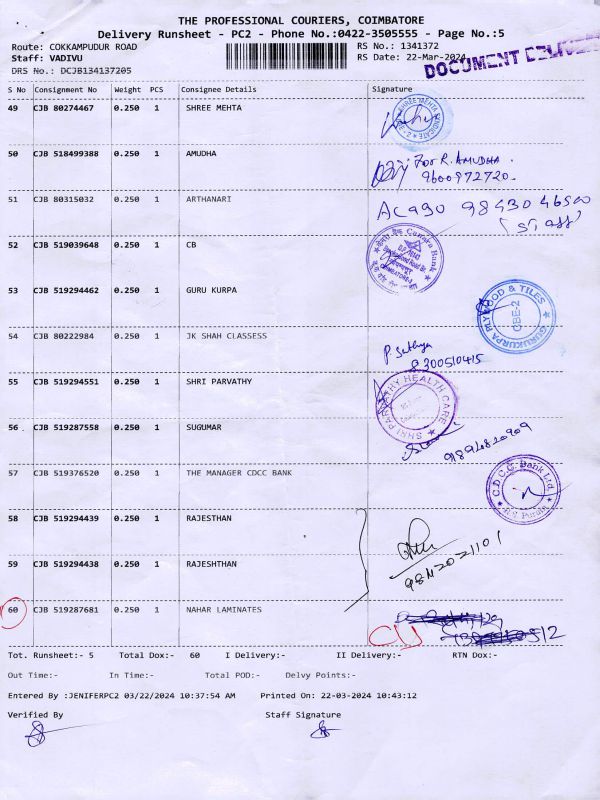 THE PROFESSIONAL COURIERS, COIMBATORE
Delivery Runsheet - PC2 - Phone No.:0422-3505555 - Page No.:5
Route: COKKAMPUDUR ROAD RS No.: 1341372
Staff: VADIVU RS Date: 22-Mar-2024
DRS No.: DCJB134137205
DOCUMENT DELIVE
S No Consignment No Weight PCS Consignee Details Signature
49 CJB 80274467 0.250 1 SHREE MEHTA
SHREE MEHTA SYNDICATE
50 CJB 518499388 0.250 1 AMUDHA For R. AMUDHA.
9600972720.
51 CJB 80315032 0.250 1 ARTHANARI
(staff)
52 CJB 519039648 0.250 1 CB
Canara Bank
53 CJB 519294462 0.250 1 GURU KURPA
GURUKURPA PLYWOOD & TILES
CBE-2
54 CJB 80222984 0.250 1 JK SHAH CLASSESS
P. Sathya
8300510415
55 CJB 519294551 0.250 1 SHRI PARVATHY
SHRI PARVATHY HEALTH CARE
56 . CJB 519287558 0.250 1 SUGUMAR
57 CJB 519376520 0.250 1 THE MANAGER CDCC BANK
C.D.C.C. Bank Ltd.
58 CJB 519294439 0.250 1 RAJESTHAN
59 CJB 519294438 0.250 1 RAJESHTHAN
60 CJB 519287681 0.250 1 NAHAR LAMINATES
Tot. Runsheet:- 5 Total Dox:- 60 I Delivery:- II Delivery:- RTN Dox:-
Out Time:- In Time:- Total POD:- Delvy Points:-
Entered By :JENIFERPC2 03/22/2024 10:37:54 AM Printed On: 22-03-2024 10:43:12
Verified By Staff Signature